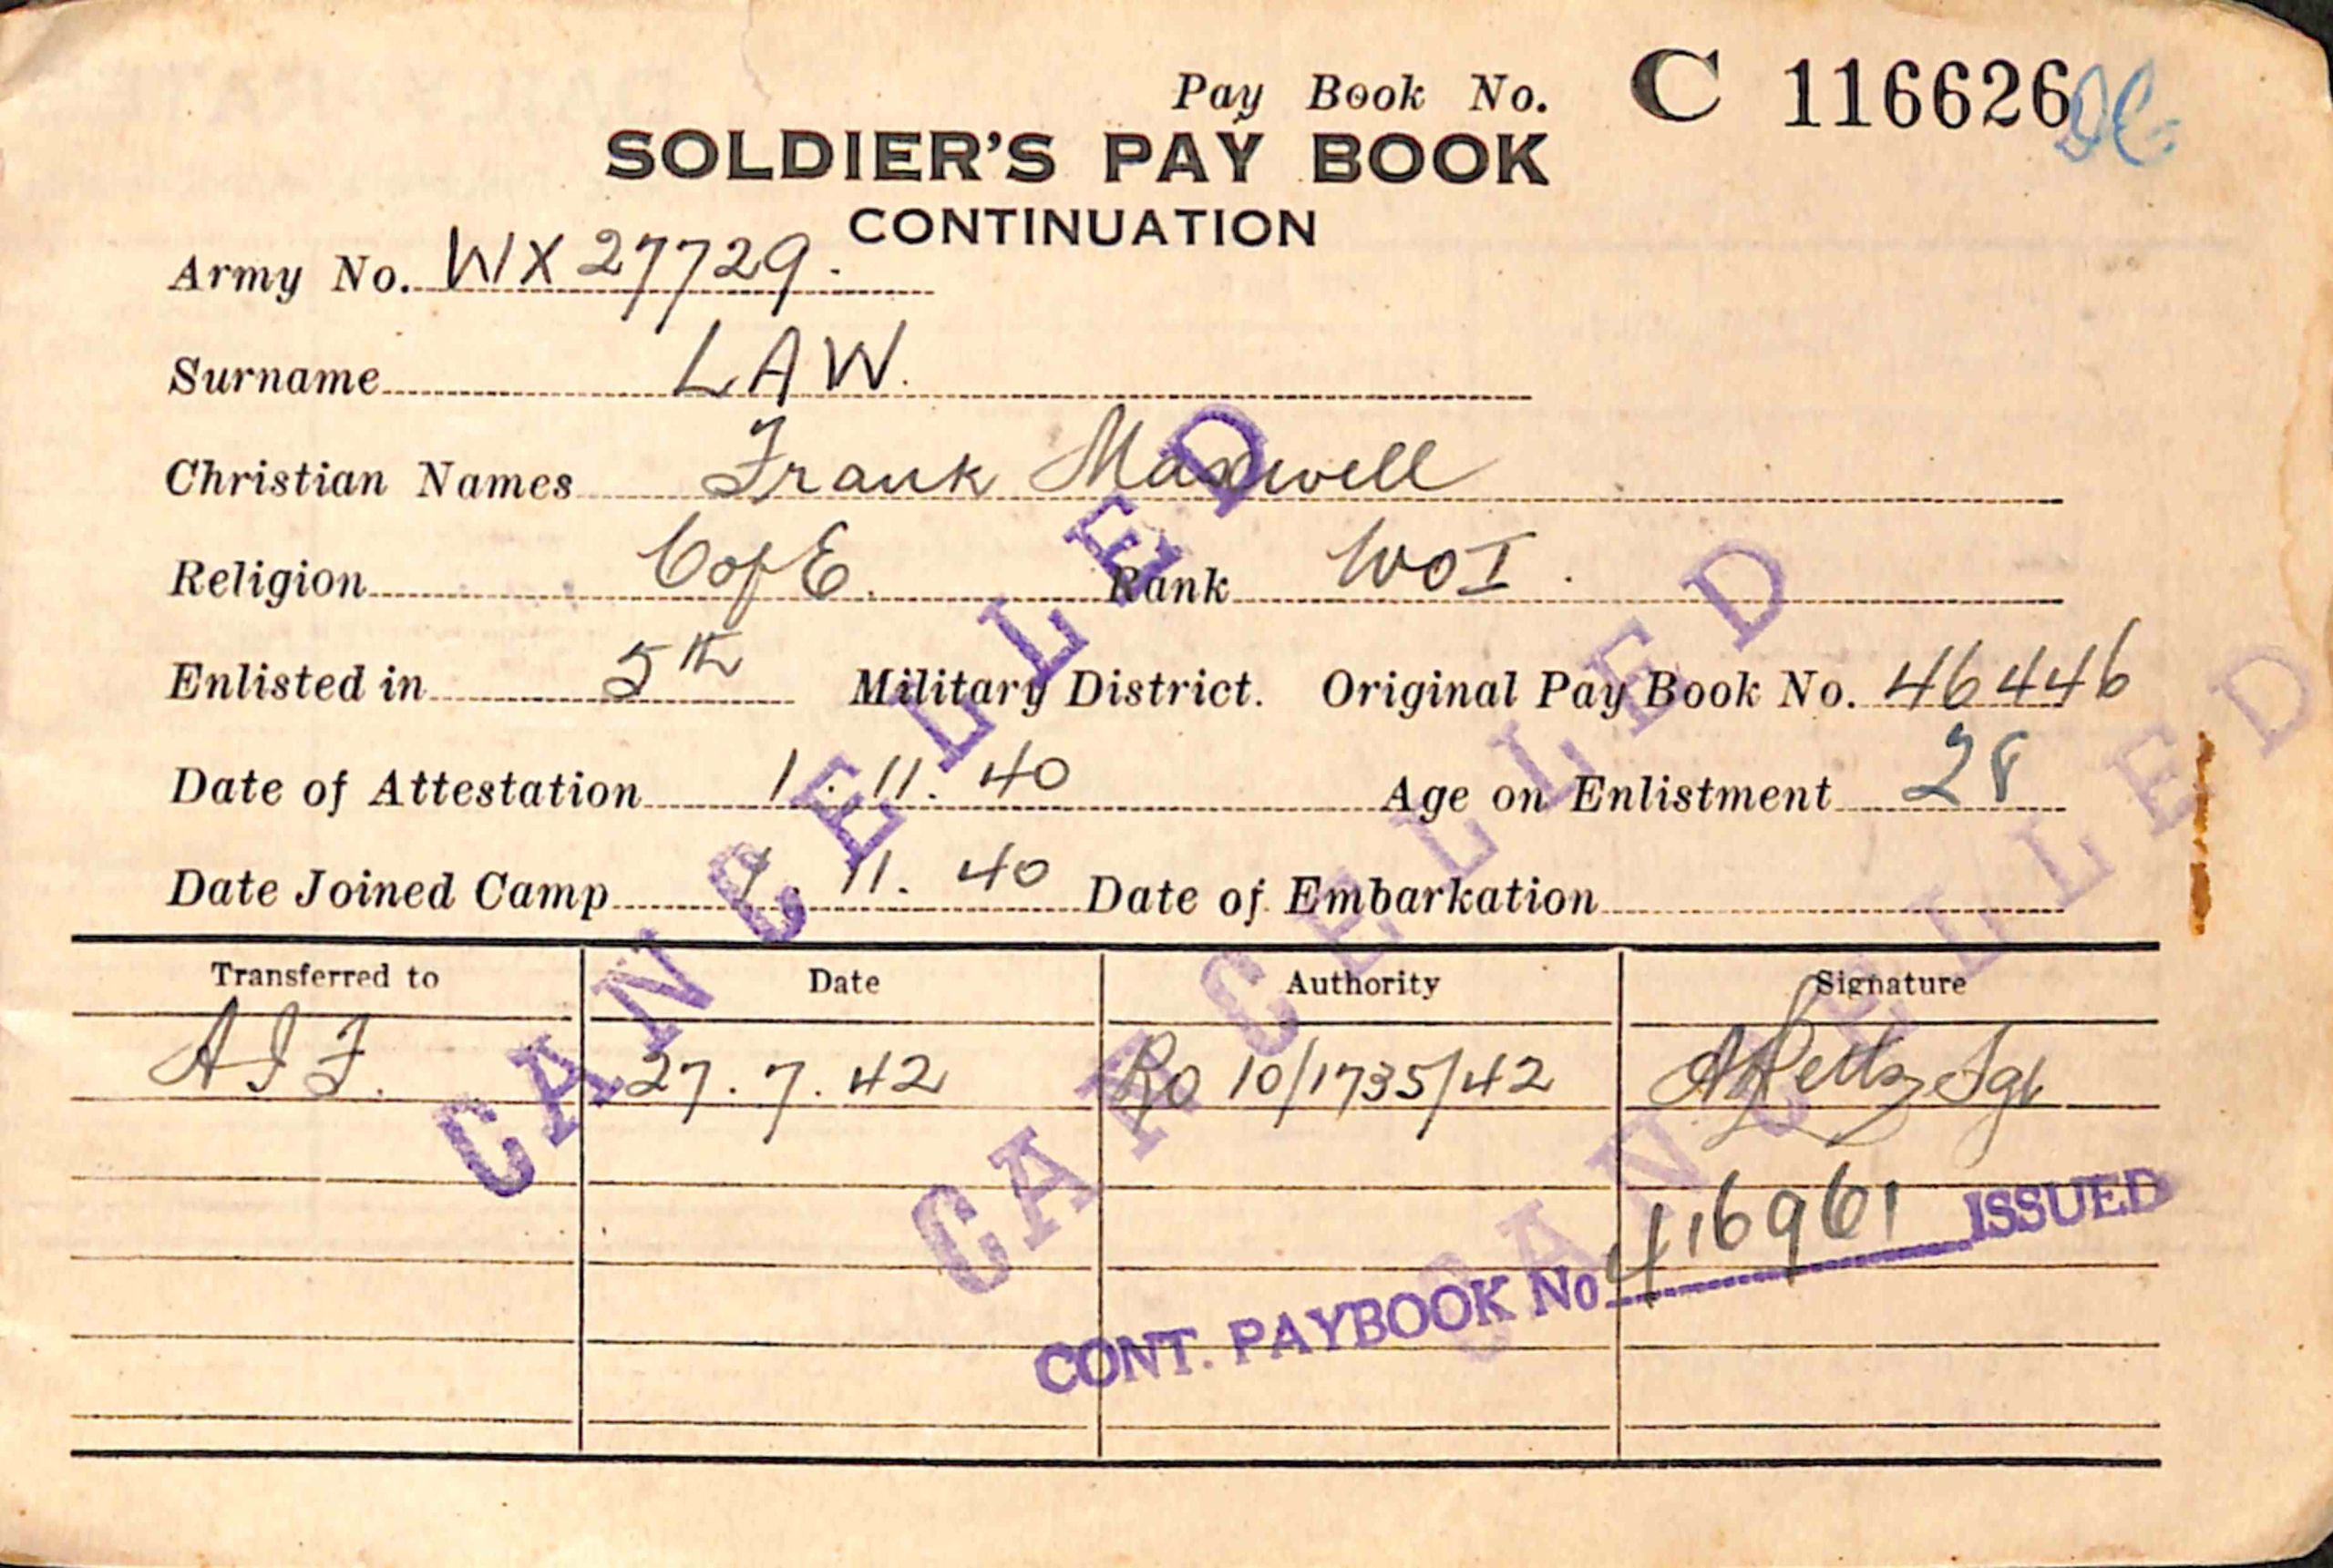 Pay Book No. C 116626
SOLDIER'S PAY BOOK
CONTINUATION
Army No. WX 27729.
Surname LAW.
Christian Names Frank Maxwell
Religion C of E. Rank WO I.
Enlisted in 5th Military District. Original Pay Book No. 46446
Date of Attestation 1.11.40 Age on Enlistment 28
Date Joined Camp 11.40 Date of Embarkation
Transferred to Date Authority Signature
A I F. 27.7.42 RO 10/1735/42 Sgt
CANCELLED
CANCELLED
CANCELLED
CONT. PAYBOOK No 416961 ISSUED